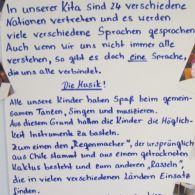 In unserer Kita sind 24 verschiedene
Nationen vertreten und es werden
viele verschiedene Sprachen gesprochen
Auch wenn wir uns nicht immer alle
verstehen, so gibt es doch eine Sprache,
die uns alle verbindet.
Die Musik!
Alle unsere Kinder haben Spaß beim gemein-
samen Tanzen, Singen und musizieren.
Aus diesem Grund hatten die Kinder die Möglich-
keit Instrumente zu basteln.
Zum einen den "Regenmacher", der ursprünglich
aus Chile stammt und aus einem getrockneten
Kaktus besteht und zum anderen "Rasseln",
die in vielen verschiedenen Ländern Einsatz
finden.